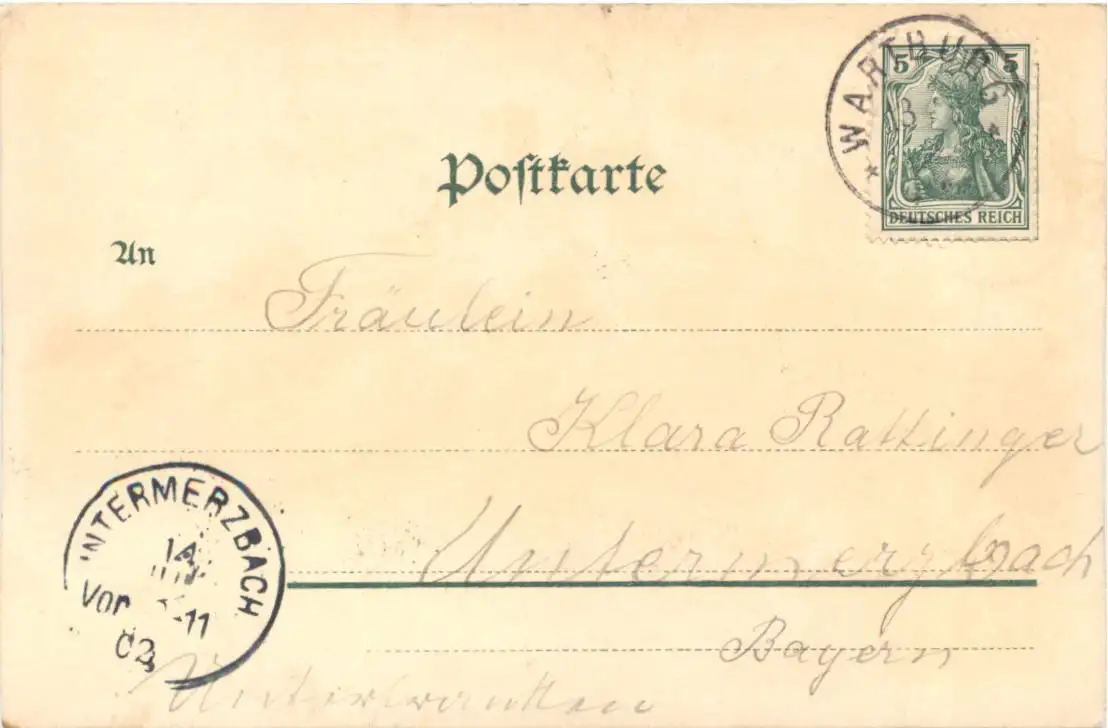 WARTBURG
5 5
DEUTSCHES REICH
Postkarte
An
Fräulein
Klara Rattinger
Untermerzbach
Bayern
Unterfranken
UNTERMERZBACH
14
Vor -11
02